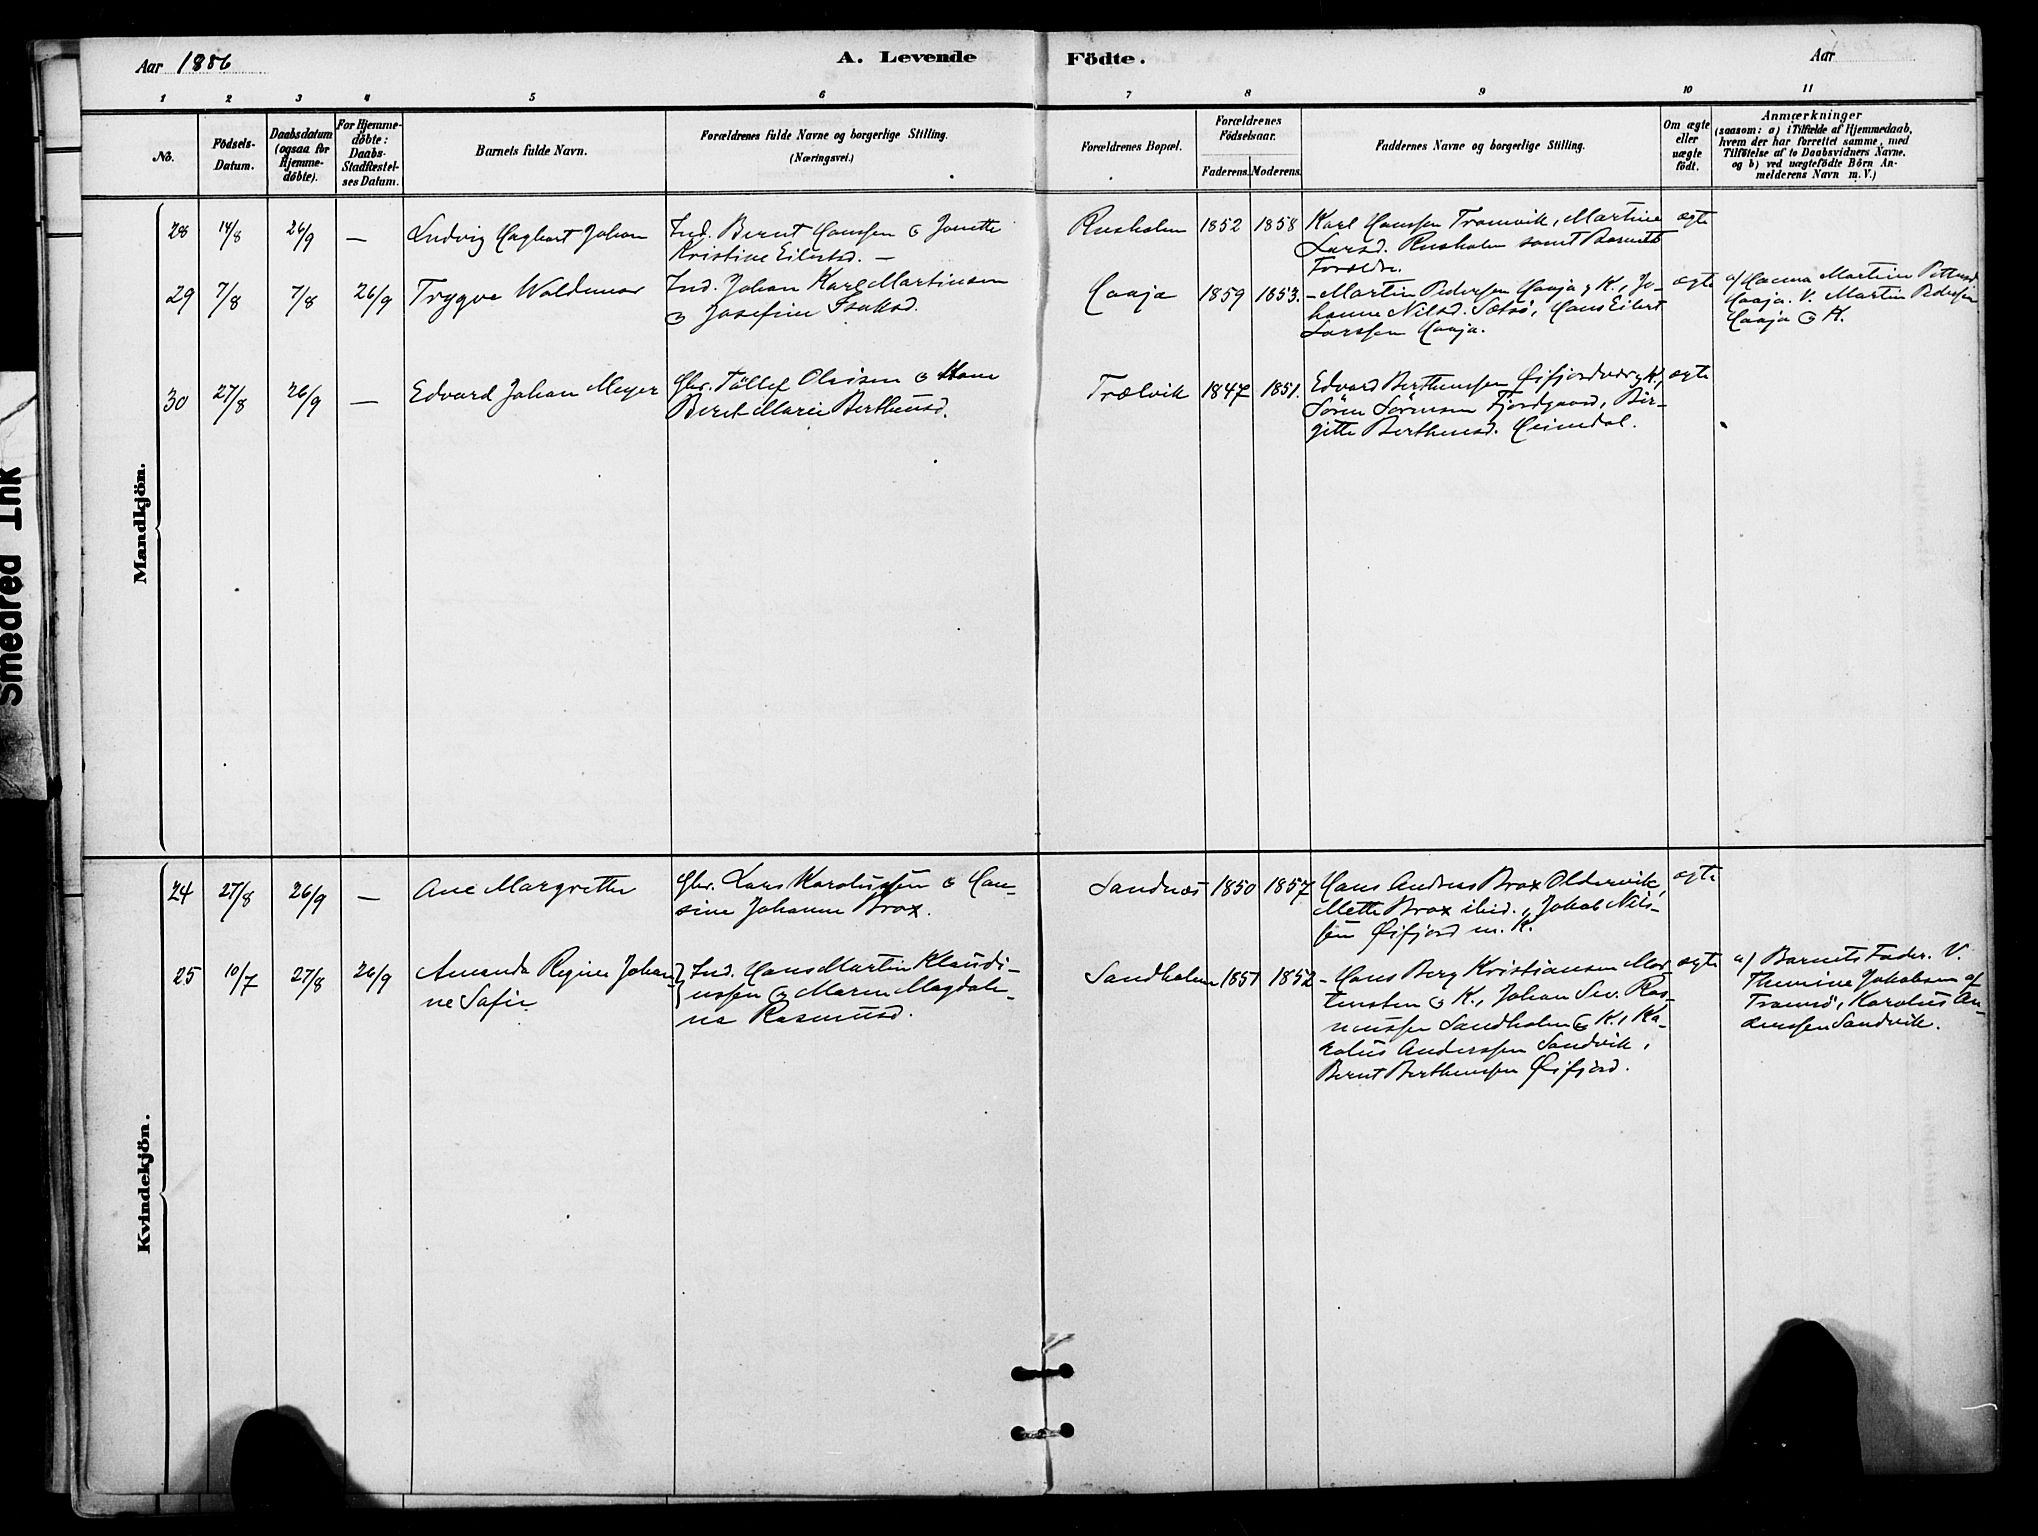 Aar 1886
A. Levende Födte.
Aar
1 2 3 4 5 6 7 8 9 10 11
No.
Födsels-
Datum.
Daabsdatum
(ogsaa for
Hjemme-
döbte).
For Hjemme-
döbte:
Daabs-
Stadfæstel-
ses Datum.
Barnets fulde Navn.
Forældrenes fulde Navne og borgerlige Stilling.
(Næringsvei.)
Forældrenes Bopæl.
Forældrenes
Födselsaar.
Faderens. Moderens.
Faddernes Navne og borgerlige Stilling.
Om ægte
eller
uægte
födt.
Anmærkninger
(saasom: a) i Tilfælde af Hjemmedaab,
hvem der har forrettet samme, med
Tilföielse af to Daabsvidners Navne,
og b) ved uægtefödte Börn An-
melderens Navn m. V.)
Mandkjön.
28 14/8 26/9 — Ludvig Hagbart Johan
Ind. Bernt Hanssen & Jonette
Kristine Eilertsd. —
Rusholm 1852 1858
Karl Hanssen Tromvik, Martine
Larsd. Rusholm samt Barnets
Forældre.
ægte
29 7/8 7/8 26/9 Trygve Waldemar
Ind. Johan Karl Martinsen
& Josefine Isaksd.
Haaja 1859 1853.
– Martin Pedersen Haaja & K., Jo-
hanne Nilsd. Sætsø, Hans Eilert
Larssen Haaja.
ægte
a) Hanna Martine
Haaja. V. Martin Pedersen
Haaja & K.
30 27/8 26/9 — Edvard Johan Meyer
Gbr. Tøllef Olsen & Hane
Berit Marie Berthensd.
Trælvik 1847 1851.
Edvard Berthenssen Øifjordvær & K.,
Sören Sörensen Fjordgaard, Bir-
gitte Berthensd. Heimdal.
ægte
Kvindekjön.
24 27/8 26/9 — Ane Margrethe
Gbr. Lars Karolussen & Han-
sine Johanne Brox.
Sandnæs 1850 1857
Hans Andreas Brox Oldervik,
Mette Brox ibid., Jakob Nils-
sen Øifjord m. K.
ægte
25 10/7 27/8 26/9 Amanda Regine Johan-
ne Sofie
Ind. Hans Martin Klaudi-
ussen & Maren Magdale-
na Rasmusd.
Sandholmen 1851 1852
– Hans Berg Kristiansen Mor-
tensten & K., Johan Sev. Ras-
mussen Sandholm & K., Ka-
rolus Anderssen Sandvik,
Bernt Berthenssen Øifjord.
ægte
a) Barnets Fader. V.
Themine Jakobsen af
Tromsø, Karolus An-
derssen Sandvik.
Smedred Ink